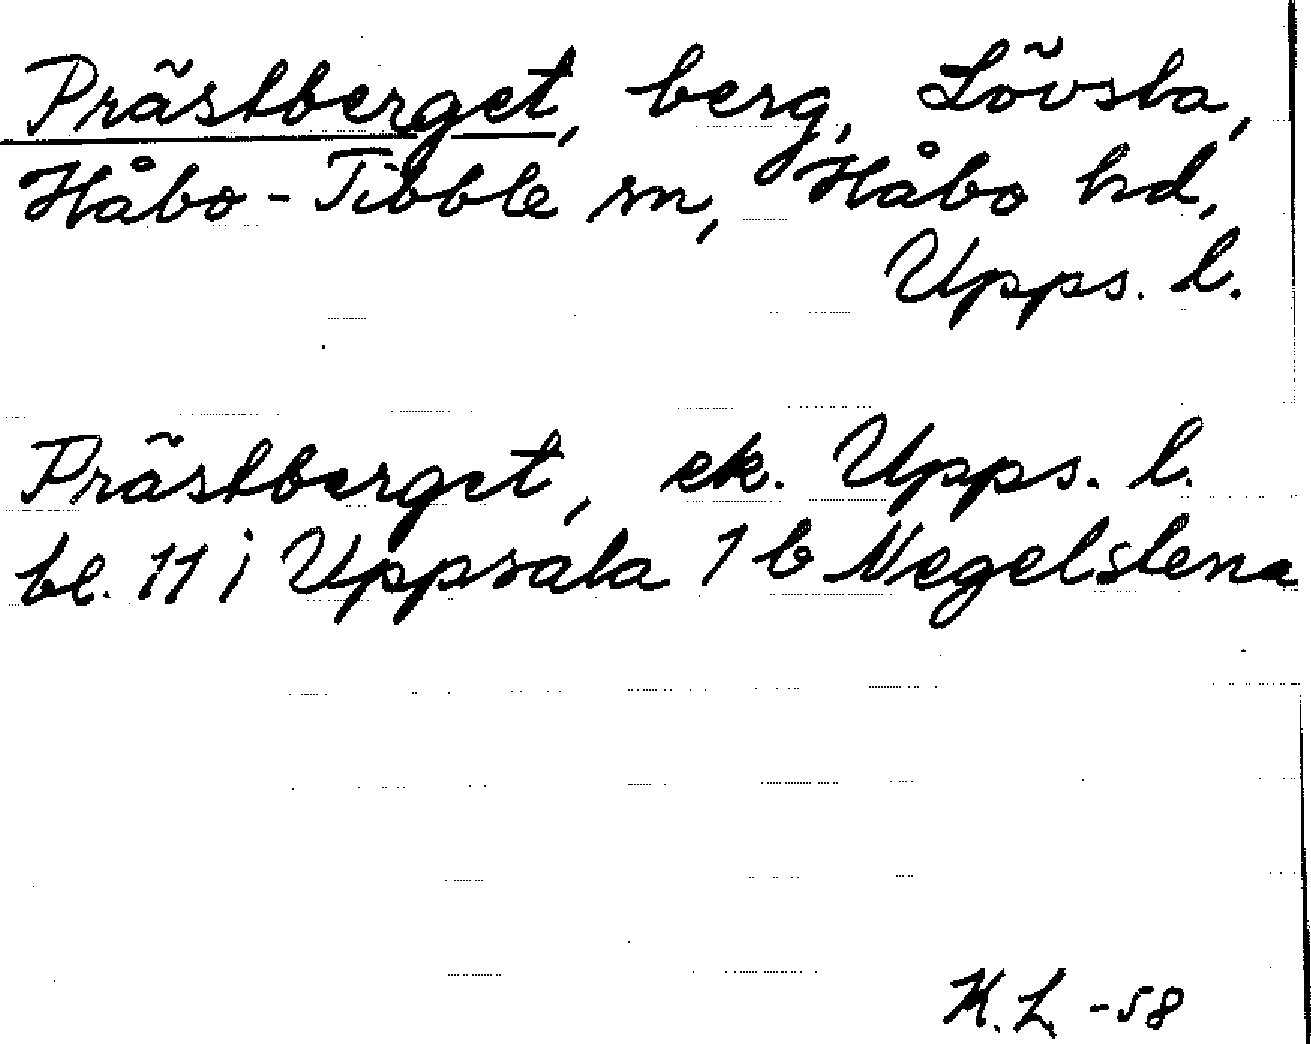 Prästberget, berg, Lövsta,
Håbo-Tibble sn, Håbo hd,
Upps. l.
Prästberget, ek. Upps. l.
bl. 11 i Uppsala 1 b Negelstena
K. L. -58